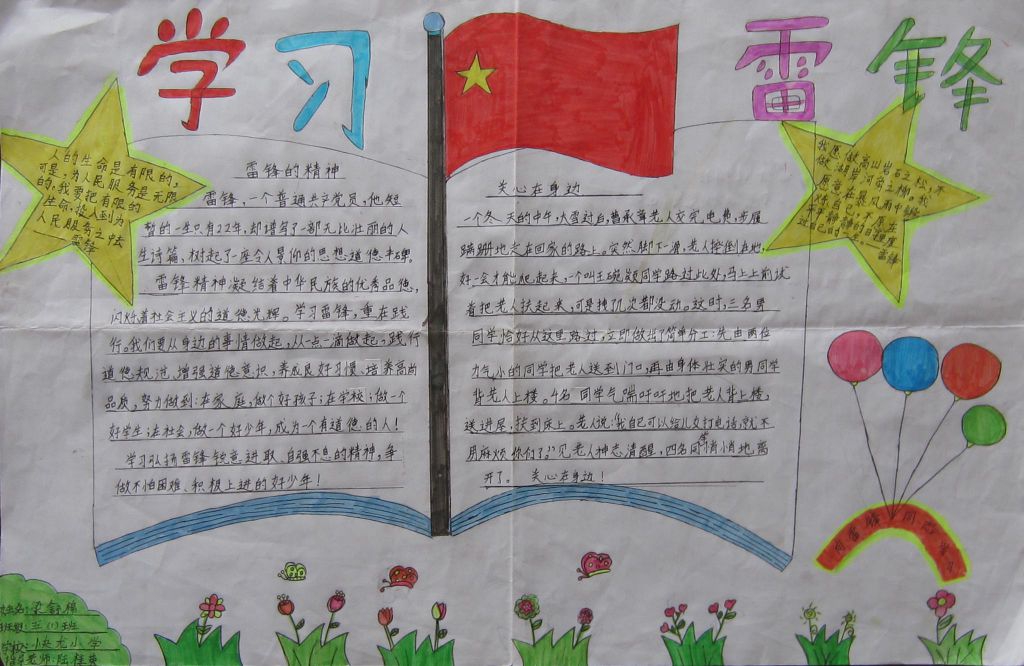 学习
雷锋
人的生命是有限的,
可是,为人民服务是无限
的,我要把有限的
生命,投入到为
人民服务之中去
——雷锋
雷锋的精神
雷锋,一个普通共产党员,他短
暂的一生只有22年,却谱写了一部无比壮丽的人
生诗篇,树起了一座令人景仰的思想道德丰碑。
雷锋精神凝结着中华民族的优秀品德,
闪烁着社会主义的道德光辉。学习雷锋,重在践
行。我们要从身边的事情做起,从一点一滴做起,践行
道德规范,增强道德意识,养成良好习惯,培养高尚
品质,努力做到:在家庭,做个好孩子;在学校;做一个
好学生;在社会,做一个好少年,成为一个有道德的人!
学习弘扬雷锋锐意进取、自强不息的精神,争
做不怕困难、积极上进的好少年!
关心在身边
一个冬天的中午,大雪过后,曹承荐老人交完电费,步履
蹒跚地走在回家的路上。突然脚下一滑,老人摔倒在地,
好一会才能爬起来,一个叫王晓凝同学路过此处,马上上前试
着把老人扶起来,可是拽了几次都没动。这时,三名男
同学恰好从这里路过,立即做出了简单分工:先由两位
力气小的同学把老人送到门口,再由身体壮实的男同学
背老人上楼。4名 同学气喘吁吁地把老人背上楼,
送进屋,扶到床上。老人说:“我自己可以给儿女打电话,就不
用麻烦你们了。”见老人神志清醒,四名同学悄悄地离
开了。 关心在身边!
我愿做高山岩石之松,不
做湖岸河旁之柳。我
愿意在暴风雨中锻
炼自己,不愿在
平静的日子里
过自己的一生。
——雷锋
向雷锋同志学习
姓名:
班级:五(1)班
学校:快龙小学
指导老师:陆桂英